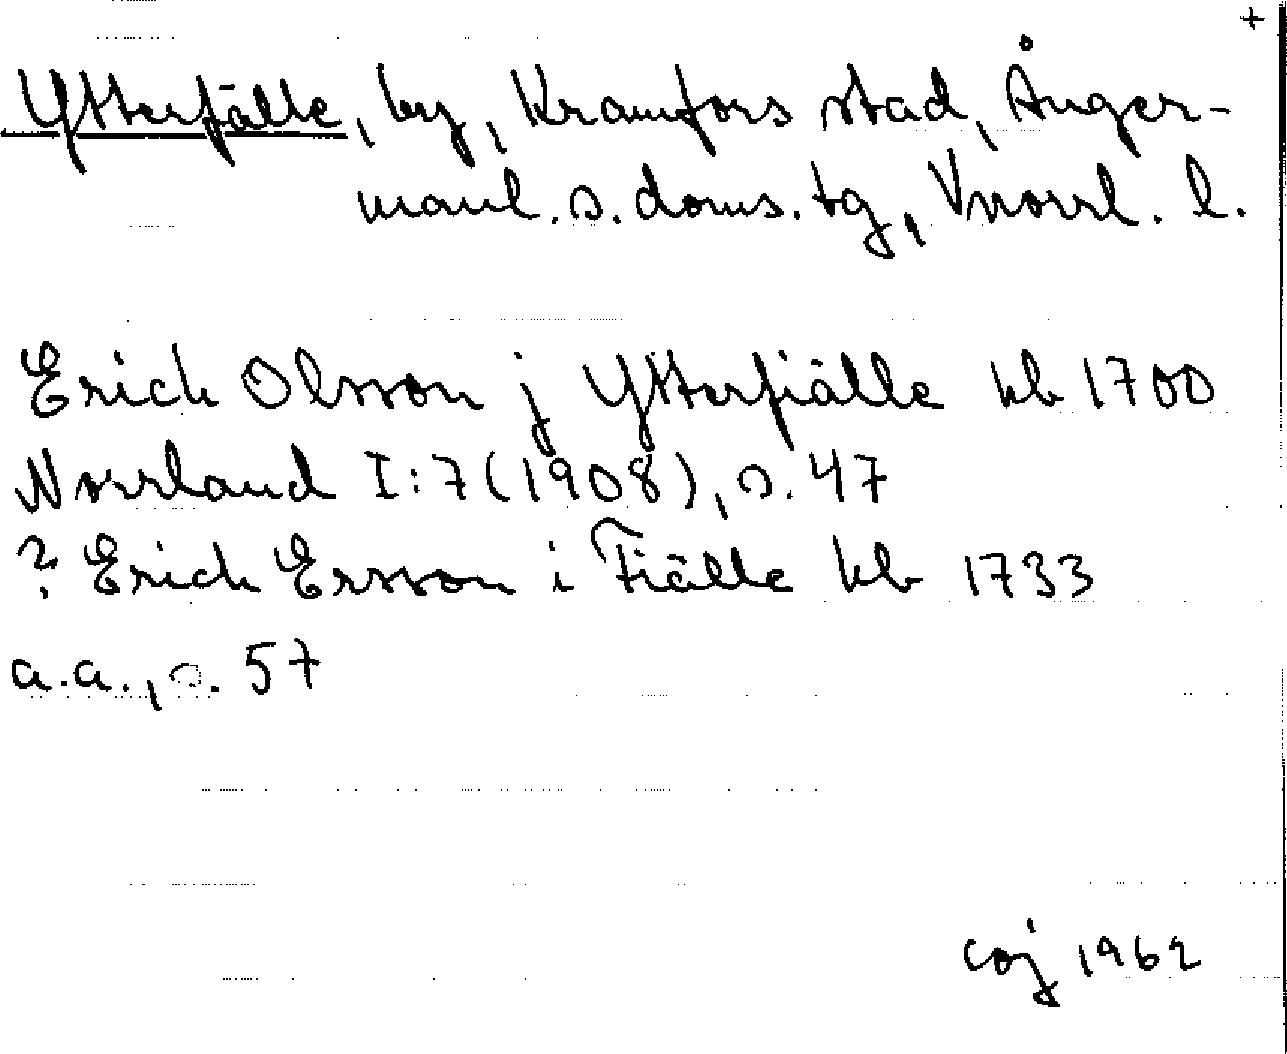 +
Ytterfälle, by, Kramfors stad, Ånger-
manl. s. doms. tg, Vnorrl. l.
Erich Olsson j Ytterfiälle kb 1700
Norrland I:7 (1908), s. 47
? Erich Ersson i Fiälle kb 1733
a.a., s. 57
coj 1962